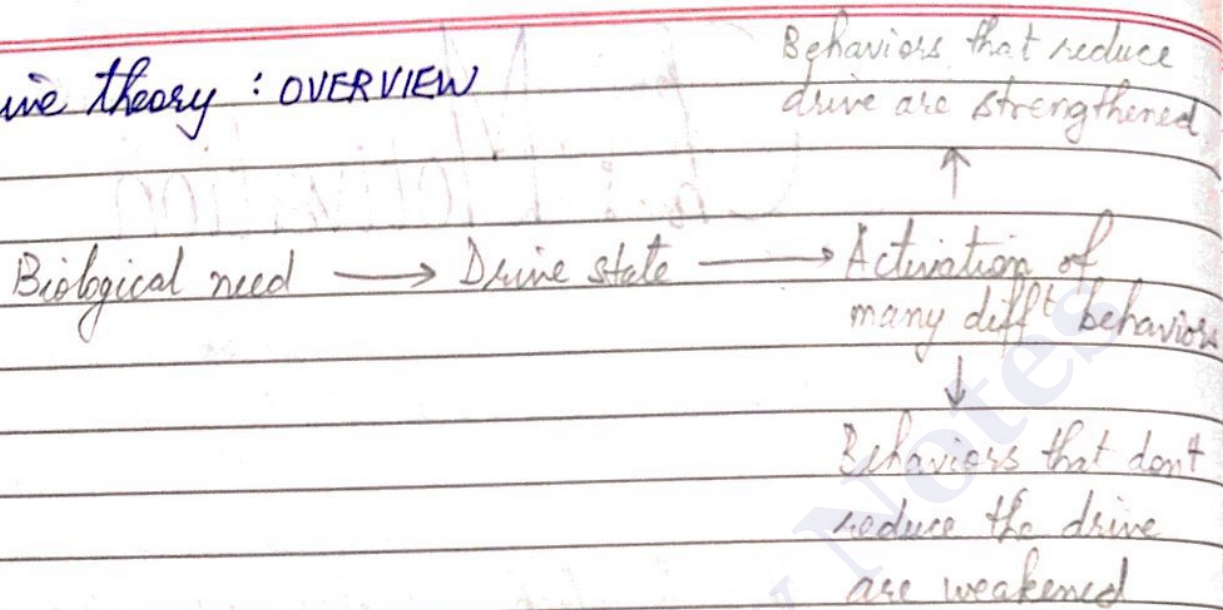 ive theory : OVERVIEW
Behaviors that reduce
drive are strengthened
↑
Biological need → Drive state → Activation of
many diff^t behaviors
↓
Behaviors that don't
reduce the drive
are weakened
Notes